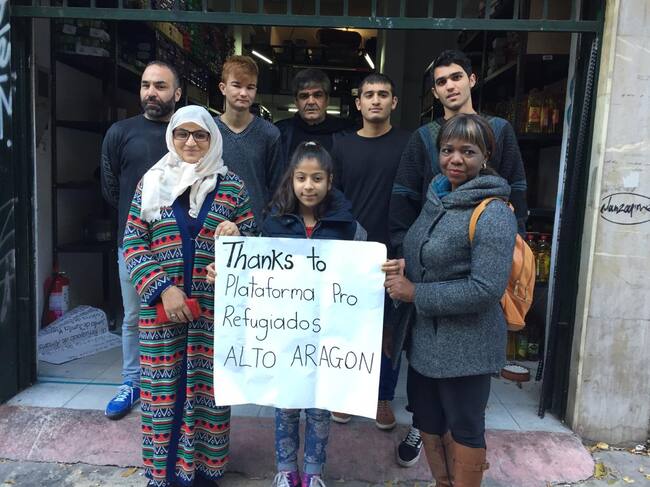 Thanks to
Plataforma Pro
Refugiados
ALTO ARAGON